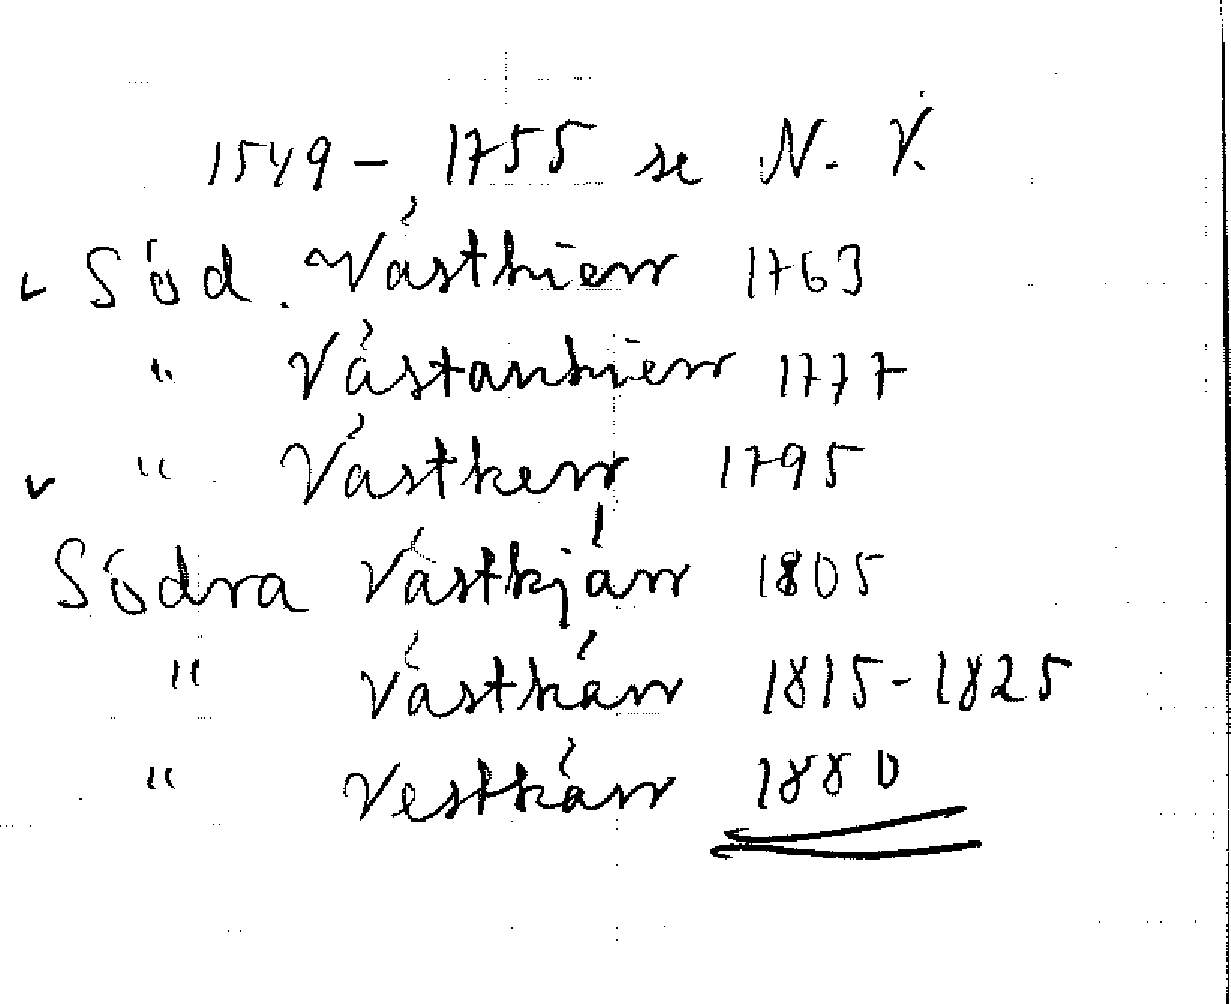 1549 - 1755 se N. V.
✓ Söd. Västkierr 1763
" Västankierr 1777
✓ " Västkerr 1795
Södra Västkjärr 1805
" Västkärr 1815-1825
" Vestkärr 1880